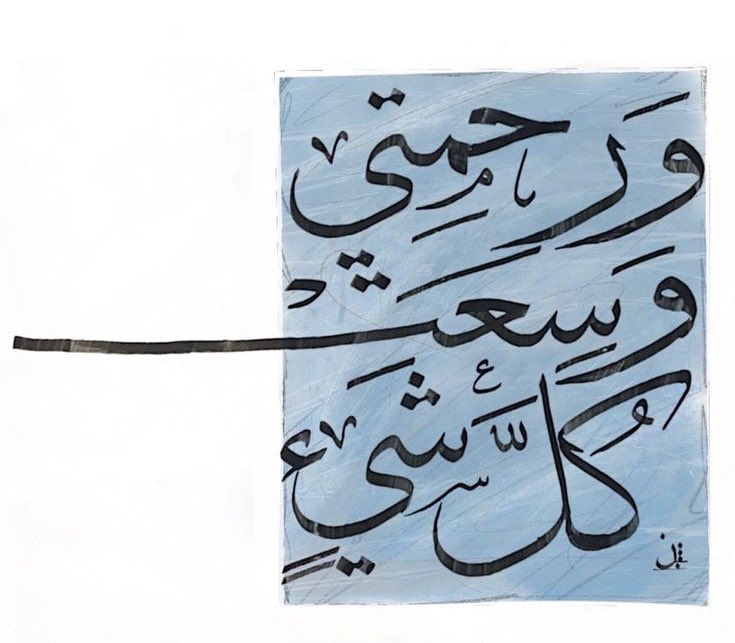 وَرَحمَتِي
وَسِعَتْ
كُلَّ شَيءٍ